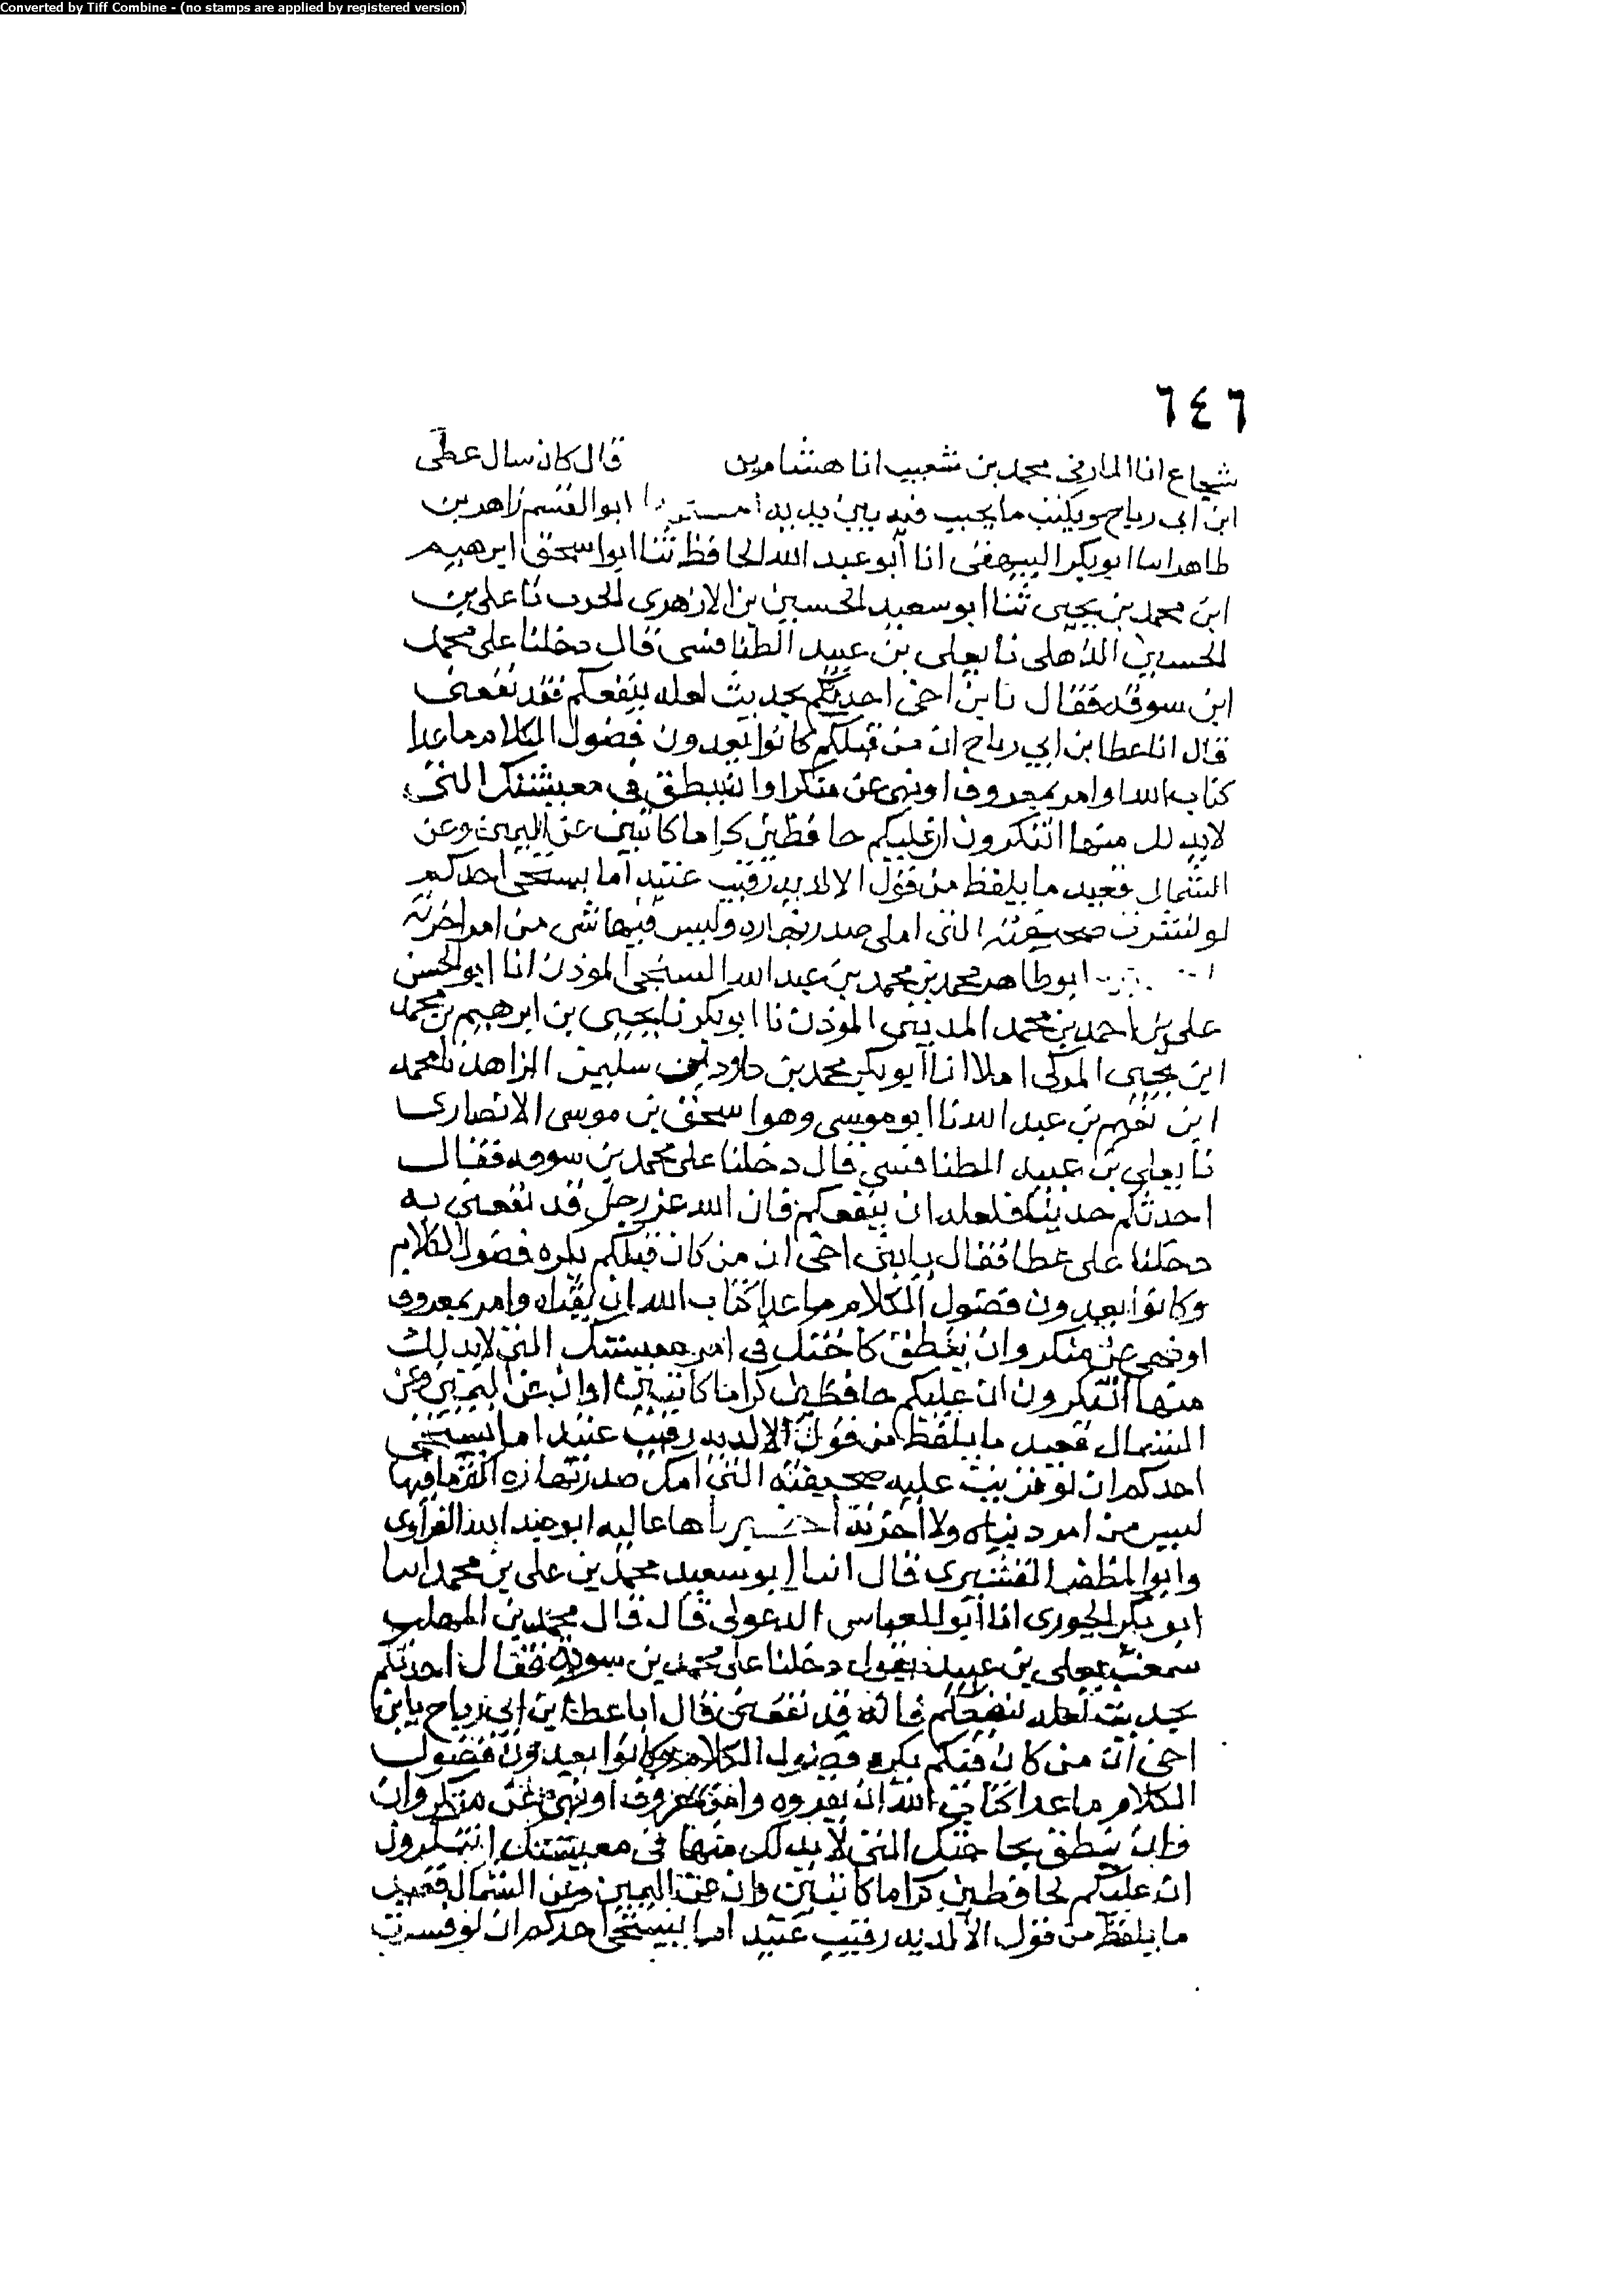 Converted by Tiff Combine - (no stamps are applied by registered version)
٦٤٦
شجاع انا المارفى محمد بن شعيب انا هشام بن قال كان سال عطى
ابن ابى رياح ويكتب ما يجيب فيه بين يديه ابو القسم زاهد بن
طاهر اسا ابو بكر البيهقى انا أبو عبد الله الحافظ ثنا ابو اسحق ابرهيم
ابن محمد بن يحيى ثنا ابو سعيد الحسين بن الازهرى نا على بن
الحسين الذهلى نا يعلى بن عبيد الطنافسى قال دخلنا على محمد
ابن سوقه فقال نا بن اخى احدثكم بحديث لعله ينفعكم فقد نفعنى
قال انا عطا بن ابى رباح ان من قبلكم كانوا يعدون فضول الكلام ما عدا
كتاب الله او امر بمعروف او نهى عن منكر او ان ينطق فى معيشتك التى
لابد لك منها اتنكرون ان عليكم حافظين كراما كاتبين عن اليمين وعن
الشمال قعيد ما يلفظ من قول الا لديه رقيب عتيد اما يستحى احدكم
لو نشرت صحيفته التى املى صدر نهاره وليس فيها شى من امر اخرته
ابو طاهر محمد بن محمد بن عبد الله السنجى الموذن انا ابو الحسن
على بن احمد بن محمد المدينى الموذن نا ابو بكر نا يحيى بن ابرهيم بن محمد
ابن يحيى المزكى املا انا ابو بكر محمد بن داود بن سليمن الزاهد نا محمد
ابن بن عبد الله نا ابو موسى وهو اسحق بن موسى الانصارى
نا يعلى بن عبيد الطنافسى قال دخلنا على محمد بن سوقه فقال
احدثكم حديثا فلعله ان ينفعكم فان الله عز وجل قد نفعنى به
دخلنا على عطا فقال يا بنى اخى ان من كان قبلكم يكره فضول الكلام
وكانوا يعدون فضول الكلام ما عدا كتاب الله ان وامر بمعروف
او نهى عن منكر وان فى امر معيشتك التى لابد لك
منها اتنكرون ان عليكم حافظين كراما كاتبين وان عن اليمين وعن
الشمال قعيد ما يلفظ من قول الا لديه رقيب عتيد اما يستحى
احدكم ان لو عليه صحيفته التى صدر نهاره اكثر ما فيها
ليس من امر دنياه ولا اخرته ها عاليه ابو عبد الله الفراوى
وابو المظفر القشيرى قال انسا ابو سعيد محمد بن على بن محمد اسا
ابو بكر الجوزى انا ابو العباس الدغولى قال قال محمد بن المهلب
سمعت يعلى بن عبيد يقول دخلنا على محمد بن سوقة فقال احدثكم
بحديث لعله ينفعكم فانه قد نفعنى قال ابا عطا بن ابى رياح يا بن
اخى ان من كان قبلكم يكره فضول الكلام وكانوا يعدون فضول
الكلام ما عدا كتاب الله ان تقروه وامر بمعروف او نهى عن منكر وان
وان ينطق بحاجتك التى لا بد لك منها فى معيشتك اتنكرون
ان عليكم لحافظين كراما كاتبين وان عن اليمين وعن الشمال قعيد
ما يلفظ من قول الا لديه رقيب عتيد اما يستحى احدكم ان لو